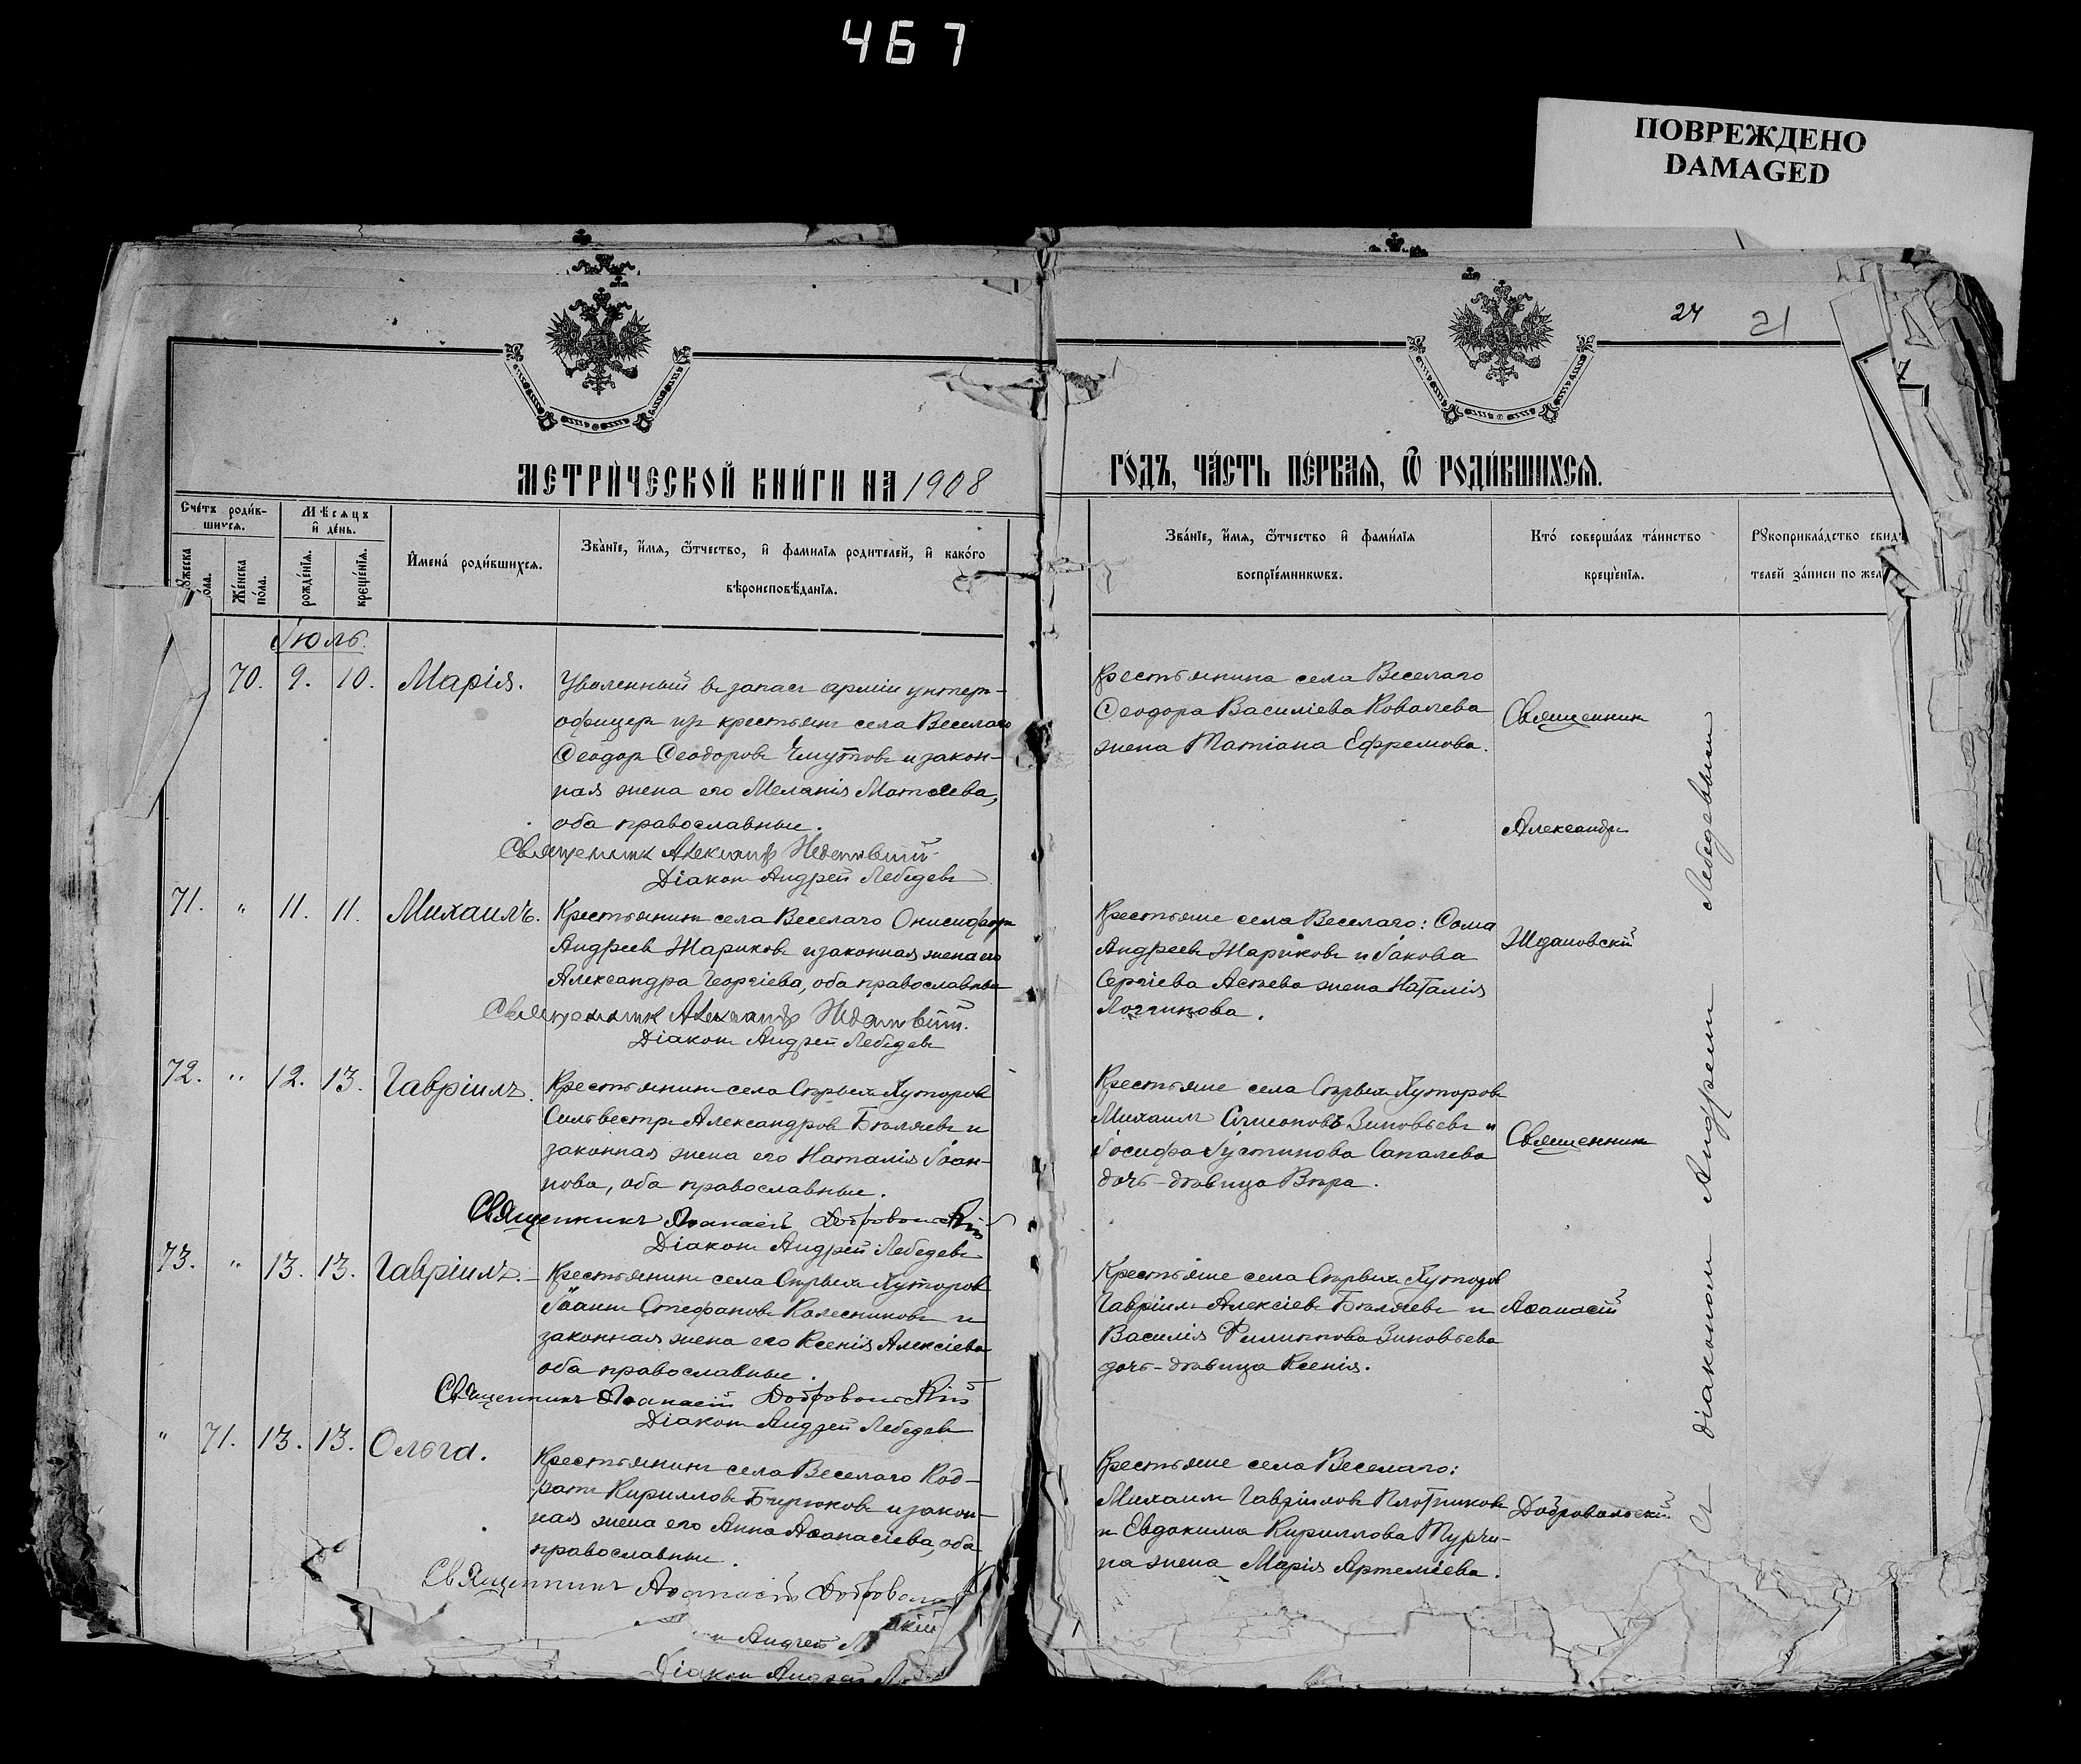 467
ПОВРЕЖДЕНО
DAMAGED
24 21
МЕТРИ́ЧЕСКОЙ КНИ́ГИ НА 1908
ГО́ДЪ, ЧА́СТЬ ПЕ́РВАѦ, Ѿ РОДИ́ВШИХСѦ.
Сче́тъ роди́в-
шихсѧ.
Мѣ́сѧцъ
и҆ де́нь.
Же́нска
по́ла.
рожде́нїѧ.
креще́нїѧ.
И҆мена̀ роди́вшихсѧ.
Зва́нїе, и҆́мѧ, ѻ҆́тчество, и҆ фами́лїѧ родителей, и҆ како́го
вѣроисповѣ́данїѧ.
Зва́нїе, и҆́мѧ, ѻ҆́тчество и҆ фами́лїѧ
воспрїе́мникѡвъ.
Кто̀ соверша́лъ та́инство
креще́нїѧ.
Рꙋкоприкла́дство свид
телей за́писи по жел
Іюль.
70. 9. 10. Марія.
Уволенный въ запасъ арміи унтеръ-
офицеръ изъ крестьянъ села Веселаго
Ѳеодоръ Ѳеодоровъ Чмутовъ и закон-
ная жена его Меланія Матѳеева,
оба православные.
Священникъ Александръ Ждановскій
Діаконъ Андрей Лебедевъ
Крестьянина села Веселаго
Ѳеодора Василіева Ковалева
жена Татіана Ефремова.
Священникъ
Александръ
71. " 11. 11. Михаилъ.
Крестьянинъ села Веселаго Онисифоръ
Андреевъ Жариковъ и законная жена его
Александра Георгіева, оба православные
Священникъ Александръ Ждановскій.
Діаконъ Андрей Лебедевъ
Крестьяне села Веселаго: Ѳома
Андреевъ Жариковъ и Іакова
Сергіева Асѣева жена Наталія
Логгинова.
Ждановскій
72. " 12. 13. Гавріилъ.
Крестьянинъ села Сѣрыхъ Хуторовъ
Сильвестръ Александровъ Бѣляевъ и
законная жена его Наталія Іоан-
нова, оба православные.
Священникъ Аѳанасій Добровольскій
Діаконъ Андрей Лебедевъ
Крестьяне села Сѣрыхъ Хуторовъ
Михаилъ Симеоновъ Зиновьевъ и
Іосифа Іустинова Сапалева
дочь-дѣвица Вѣра.
Священникъ
73. " 13. 13. Гавріилъ.
Крестьянинъ села Сѣрыхъ Хуторовъ
Іоаннъ Стефановъ Колесниковъ и
законная жена его Ксенія Алексіева
оба православные.
Священникъ Аѳанасій Добровольскій
Діаконъ Андрей Лебедевъ
Крестьяне села Сѣрыхъ Хуторовъ
Гавріилъ Алексіевъ Бѣляевъ и
Василія Филиппова Зиновьева
дочь-дѣвица Ксенія.
Аѳанасій
" 71. 13. 13. Ольга.
Крестьянинъ села Веселаго Код-
ратъ Кирилловъ Бирюковъ и закон-
ная жена его Анна Аѳанасіева, оба
православные.
Священникъ Аѳанасій Добровольскій
Андрей
Діаконъ Андрей
Крестьяне села Веселаго:
Михаилъ Гавріиловъ Плотниковъ
и Евдокима Кириллова Турчи-
на жена Марія Артеміева.
Добровольскій
съ діакономъ Андреемъ Лебедевымъ